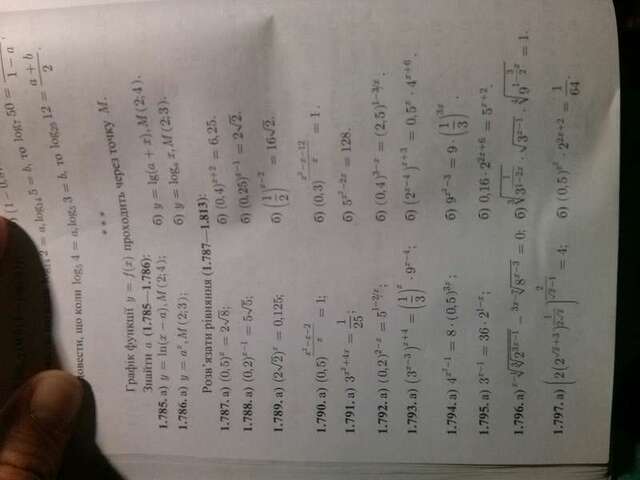 овести, що коли log₅ 4 = a, log₅ 3 = b, то log₂₅ 12 = (a + b)/2.
* * *
Графік функції y = f(x) проходить через точку M.
Знайти a (1.785—1.786):
1.785. а) y = ln(x − a), M(2;4); б) y = lg(a + x), M(2;4).
1.786. а) y = aˣ, M(2;3); б) y = logₐ x, M(2;3).
Розв'язати рівняння (1.787—1.813):
1.787. а) (0,5)ˣ = 2√8; б) (0,4)^(x+2) = 6,25.
1.788. а) (0,2)^(x−1) = 5√5; б) (0,25)^(x−1) = 2√2.
1.789. а) (2√2)ˣ = 0,125; б) (1/2)^(x−2) = 16√2.
1.790. а) (0,5)^((x²−x−2)/x) = 1; б) (0,3)^((x²−x−12)/x) = 1.
1.791. а) 3^(x²+4x) = 1/25; б) 5^(x²−2x) = 128.
1.792. а) (0,2)^(2−x) = 5^(1−2/x); б) (0,4)^(3−x) = (2,5)^(1−3/x).
1.793. а) (3^(x−3))^(x+4) = (1/3)ˣ · 9^(x−4); б) (2^(x−4))^(x+3) = 0,5ˣ · 4^(x+6).
1.794. а) 4^(x²−1) = 8 · (0,5)^(2x); б) 9^(x²−3) = 9 · (1/3)^(3x).
1.795. а) 3^(x−1) = 36 · 2^(1−x); б) 0,16 · 2^(2x+6) = 5^(x+2).
1.796. а)
1.797. а) = 4; б) (0,5)^(x²) · 2^(2x+2) = 1/64.